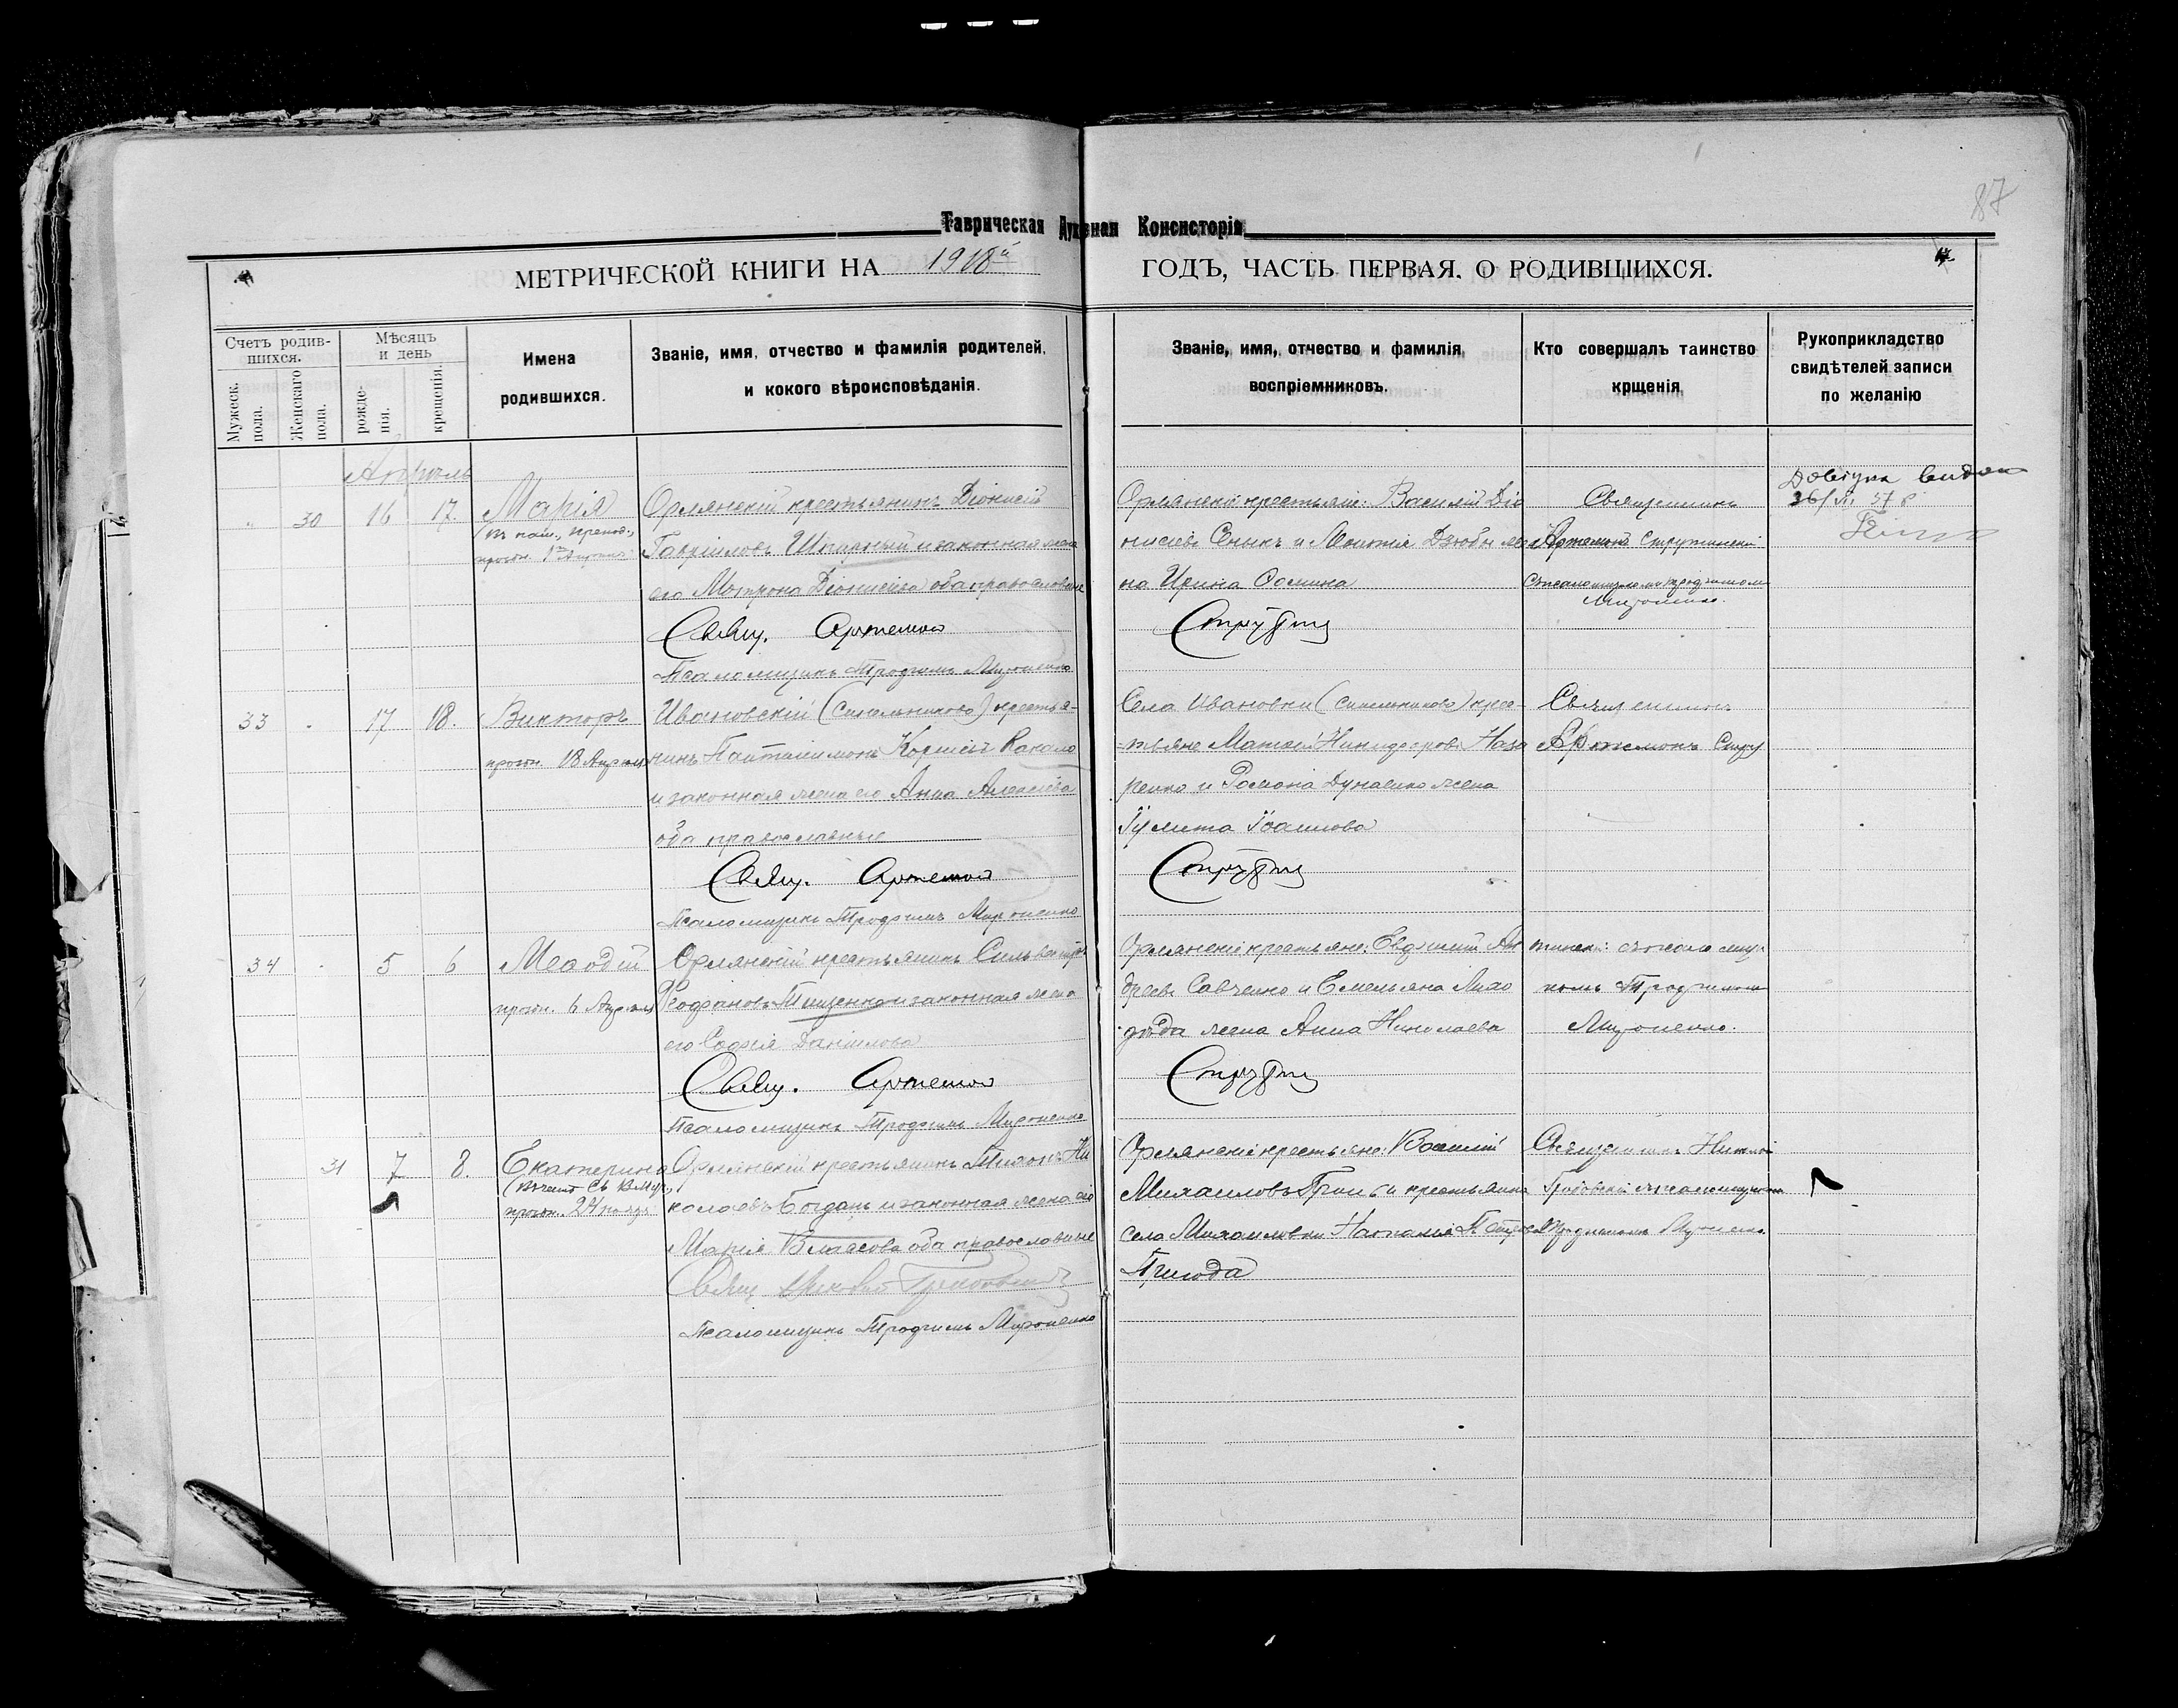 87
Таврическая Духовная Консисторія
МЕТРИЧЕСКОЙ КНИГИ НА 1918й ГОДЪ, ЧАСТЬ ПЕРВАЯ. О РОДИВШИХСЯ.
Счетъ родив-
шихся.
Мужеск.
пола.
Женскаго
пола.
Мѣсяцъ
и день
рожде-
нія.
крещенія.
Имена
родившихся.
Званіе, имя, отчество и фамилія родителей,
и кокого вѣроисповѣданія.
Званіе, имя, отчество и фамилія,
воспріемниковъ.
Кто совершалъ таинство
крщенія
Рукоприкладство
свидѣтелей записи
по желанію
Апрѣль
30 16 17. Марія
1го Апрѣля
Орлянскій крестьянинъ Діонисій
Гавріиловъ и законная жена
его Матрона Діонисіева оба православные
Свящ. Артемон
Псаломщикъ Трофимъ Мироненко
Орлянскіе крестьяне: Василій Діо
нисіевъ и Дзюбы же
на Ирина
Струт
Священникъ
Артемонъ Струтинскій
съ псаломщикомъ Трофимомъ
Мироненко.
Довідка видана
33 17 18. Викторъ
18 Апрѣля
Ивановскій (Синельниково) крестья-
нинъ Пантелимонъ
и законная жена его Анна Алексіева
оба православные
Свящ. Артемон
Псаломщикъ Трофимъ Мироненко
Села Ивановки (Синельниково) крес-
тьяне Матѳей Никифоровъ Наза
ренко и Романа Дунаенко жена
Іулита Іоаннова
Струт
Священникъ
Артемонъ Стру
34 5 6 Меѳодій
6 Апрѣля
Орлянскій крестьянинъ Сильвестръ
Тищенко и законная жена
его Софія Даніилова
Свящ. Артемон
Псаломщикъ Трофимъ Мироненко
Орлянскіе крестьяне: Евфимій Ан
дреевъ Савченко и Емельяна Лихо
дѣда жена Анна Николаева
Струт
тинскій съ псаломщи-
комъ Трофимомъ
Мироненко.
31 7 8. Екатерина
24 ноября
Орлянскій крестьянинъ Тихонъ Ни
колаевъ Богданъ и законная жена его
Марія Власова оба православные
Свящ.
Псаломщикъ Трофимъ Мироненко
Орлянскіе крестьяне: Василій
Михаиловъ и крестьянка
села Михайловки Наталія Петрова
Пригода
Священникъ Николай
съ псаломщикомъ
Трофимомъ Мироненко.